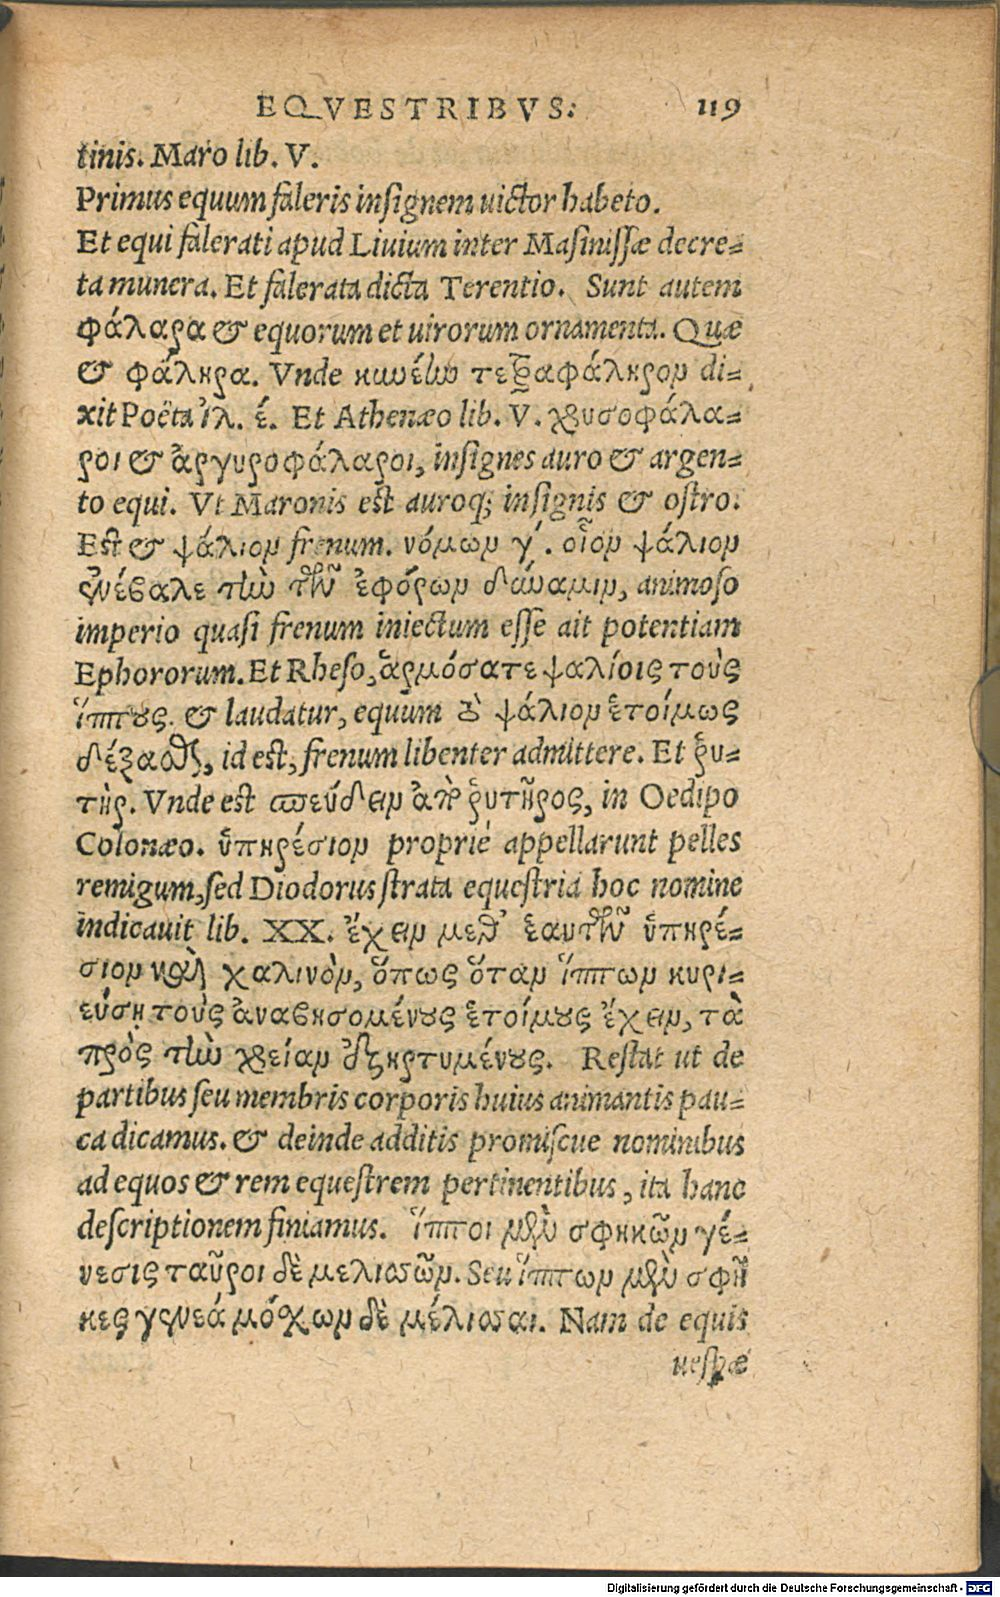 EQVESTRIBVS. 119
tinis. Maro lib. V.
Primus equum faleris insignem uictor habeto.
Et equi falerati apud Liuium inter Masinissæ decre-
ta munera. Et falerata dicta Terentio. Sunt autem
φάλαρα & equorum et uirorum ornamenta. Quæ
& φάληρα. Vnde κυνέην τετραφάληρον di-
xit Poëta ἰλ. έ. Et Athenæo lib. V. χρυσοφάλα-
ροι & ἀργυροφάλαροι, insignes auro & argen-
to equi. Vt Maronis est auroq; insignis & ostro.
Est & ψάλιον frenum. νόμων γ΄. οἷον ψάλιον
ἐνέβαλε τὴν τῶν ἐφόρων δύναμιν, animoso
imperio quasi frenum iniectum esse ait potentiam
Ephororum. Et Rheso, ἁρμόσατε ψαλίοις τοὺς
ἵππους. & laudatur, equum τὸ ψάλιον ἑτοίμως
δέξασθαι, id est, frenum libenter admittere. Et ῥυ-
τήρ. Vnde est σπεύδειν ἀπὸ ῥυτῆρος, in Oedipo
Colonæo. ὑπηρέσιον propriè appellarunt pelles
remigum, sed Diodorus strata equestria hoc nomine
indicauit lib. XX. ἔχειν μεθ' ἑαυτῶν ὑπηρέ-
σιον καὶ χαλινὸν, ὅπως ὅταν ἵππων κυρι-
εύσῃ τοὺς ἀναβησομένους ἑτοίμους ἔχειν, τὰ
πρὸς τὴν χρείαν ἐξηρτυμένους. Restat ut de
partibus seu membris corporis huius animantis pau-
ca dicamus. & deinde additis promiscue nominibus
ad equos & rem equestrem pertinentibus, ita hanc
descriptionem finiamus. ἵπποι μὲν σφηκῶν γέ-
νεσις ταῦροι δὲ μελισσῶν. Seu ἵππων μὲν σφῆ
κες γενεά μόσχων δὲ μέλισσαι. Nam de equis
uespæ
Digitalisierung gefördert durch die Deutsche Forschungsgemeinschaft - DFG